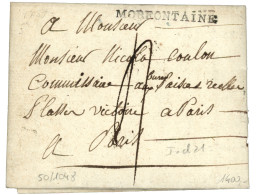 MORFONTAINE
a Monsieur
Monsieur Nicolas Coulon
Commissaire aux Saisies reelles
place victoire a Paris
a Paris
50/1048
1402